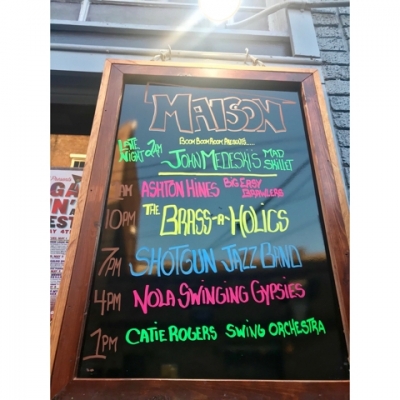 MAISON
BOOM BOOM ROOM PRESENTS...
LATE NIGHT 2AM JOHN MEDESKI'S MAD SKILLET
AM ASHTON HINES BIG EASY BRAWLERS
10PM THE BRASS-A-HOLICS
7PM SHOTGUN JAZZ BAND
4PM NOLA SWINGING GYPSIES
1PM CATIE ROGERS SWING ORCHESTRA